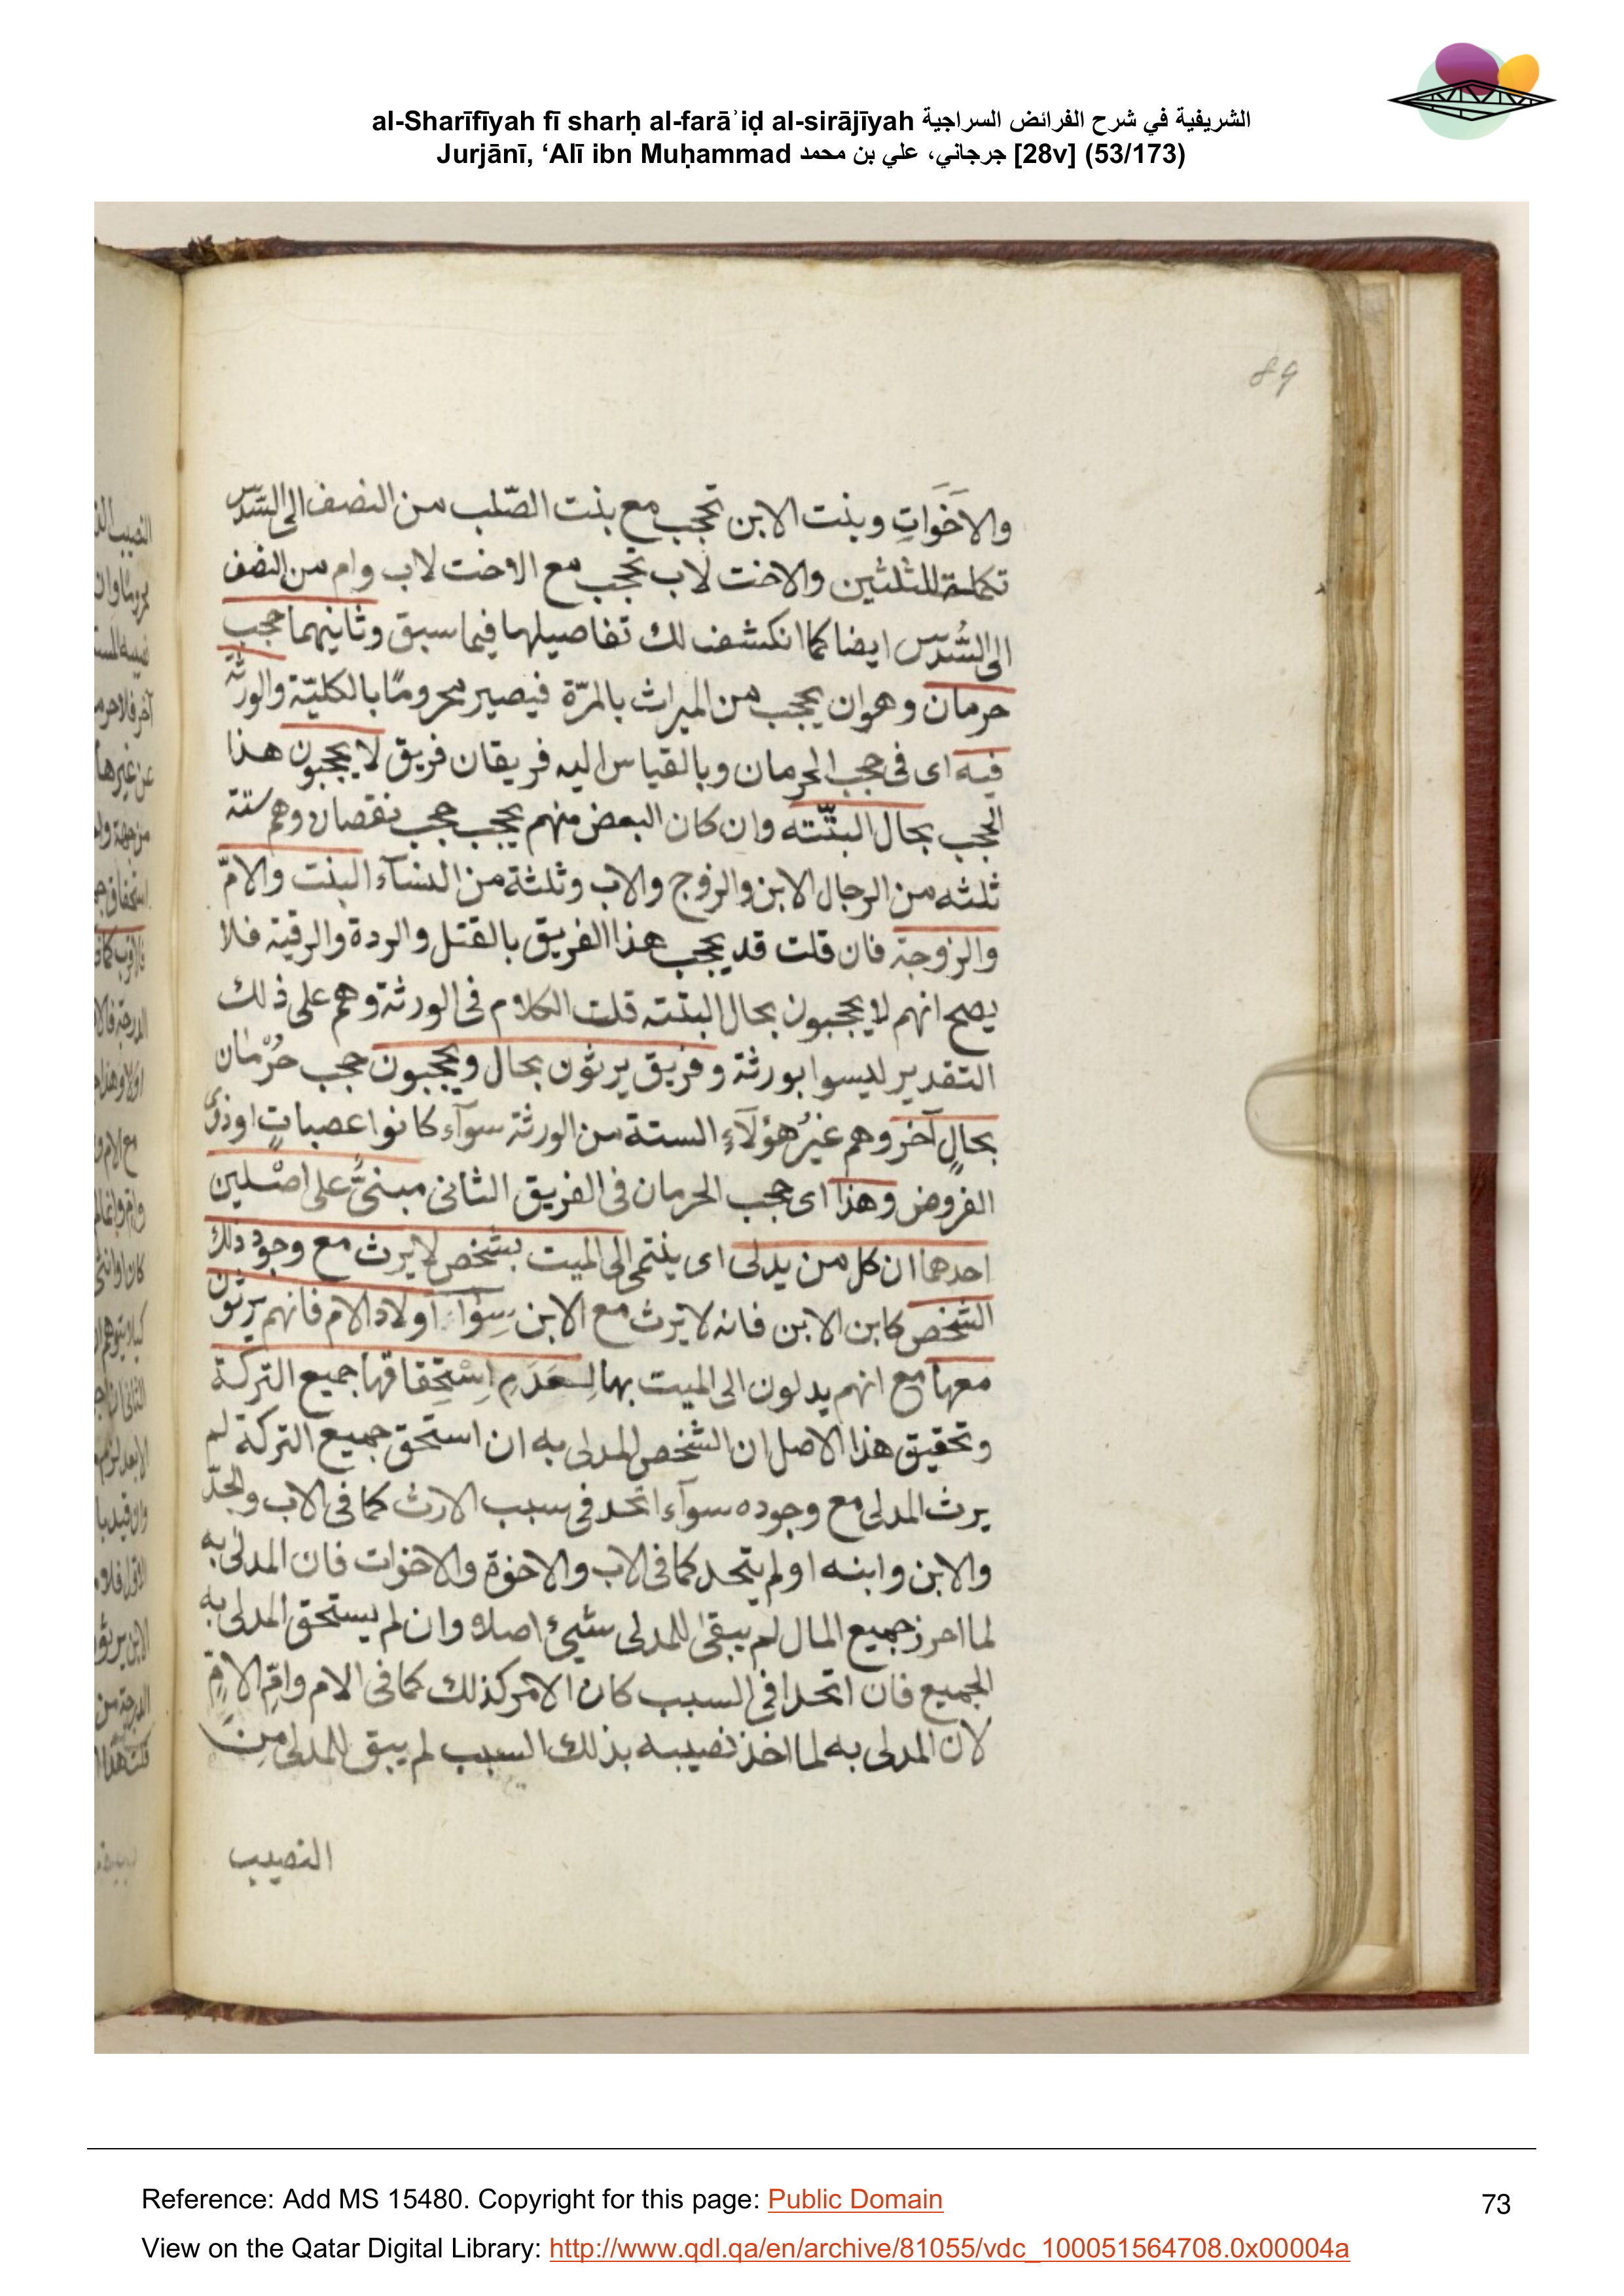 al-Sharīfīyah fī sharḥ al-farāʾiḍ al-sirājīyah الشريفية في شرح الفرائض السراجية
Jurjānī, ‘Alī ibn Muḥammad جرجاني، علي بن محمد [28v] (53/173)
89
والاَخَوَاتِ وبنت الابن تحجب مع بنت الصّلب من النصف الى السّدس
تكملة للثلثين والاخت لاب تحجب مع الاخت لاب وام من النصف
الى السُّدس ايضا كما انكشف لك تفاصيلها فيما سبق وثانيهما حجب
حرمان وهو ان يحجب من الميراث بالمرّة فيصير محرومًا بالكليّة والورثة
فيه اى فى حجب الحرمان وبالقياس اليه فريقان فريق لا يحجبون هذا
الحجب بحال البتّته وان كان البعض منهم يحجب حجب نقصان وهم ستة
ثلثه من الرجال الابن والزوج والاب وثلثة من النسآء البنت والامّ
والزوجة فان قلت قد يحجب هذا الفريق بالقتل والردة والرقية فلا
يصح انهم لا يحجبون بحال البتته قلت الكلام فى الورثة وهم على ذلك
التقدير ليسوا بورثة وفريق يرثون بحال ويحجبون حجب حُرْمان
بحالٍ آخر وهم غيرُ هؤلآءِ الستة من الورثة سوآء كانوا عصباتٍ اوذوى
الفروض وهذا اى حجب الحرمان فى الفريق الثانى مبنىٌّ على اصْلين
احدهما ان كل من يدلى اى ينتمى الى الميت بشخص لا يرث مع وجود ذلك
الشخص كابن الابن فانه لا يرث مع الابن سِوٰآء اولاد الام فانهم يرثون
معها مع انهم يدلون الى الميت بها لِعَدَمِ اِسْتِحقاقها جميع التركة
وتحقيق هذا الاصل ان الشخص المدلى به ان استحق جميع التركة لم
يرث المدلى مع وجوده سوآء اتحد فى سبب الارث كما فى الاب والجدّ
والابن وابنه او لم يتحد كما فى الاب والاخوة والاخوات فان المدلى به
لما احرز جميع المال لم يبقىٰ للمدلى شيئ اصلا وان لم يستحق المدلى به
الجميع فان اتحدا فى السبب كان الامر كذلك كما فى الام وامّ الامّ
لان المدلى به لما اخذ نصيبه بذلك السبب لم يبق للمدلى من
النصيب
Reference: Add MS 15480. Copyright for this page: Public Domain
73
View on the Qatar Digital Library: http://www.qdl.qa/en/archive/81055/vdc_100051564708.0x00004a